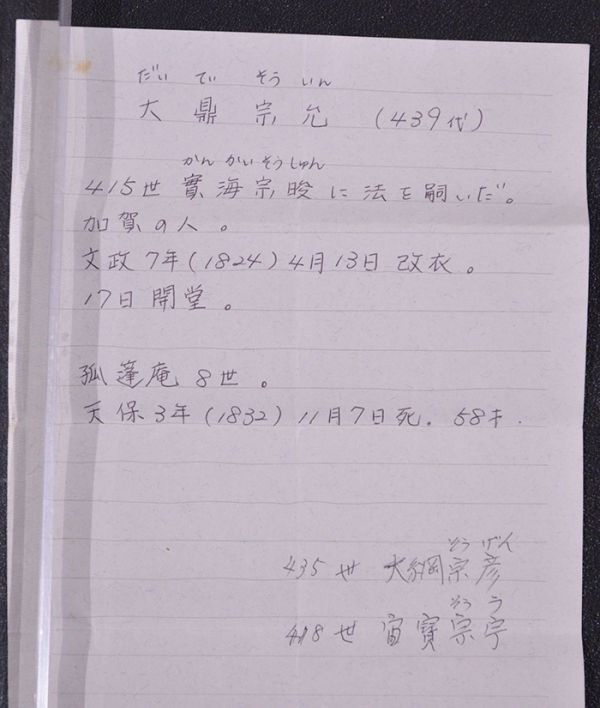 だい てい そう いん
大鼎宗允 (439代)
かん かい そうしゅん
415世 實海宗晙に法を嗣いだ。
加賀の人。
文政7年(1824)4月13日 改衣。
17日開堂。
孤蓬庵 8世。
天保3年(1832)11月7日死. 58才.
そう げん
435世 大綱宗彦
そう う
418世 宙寶宗宇